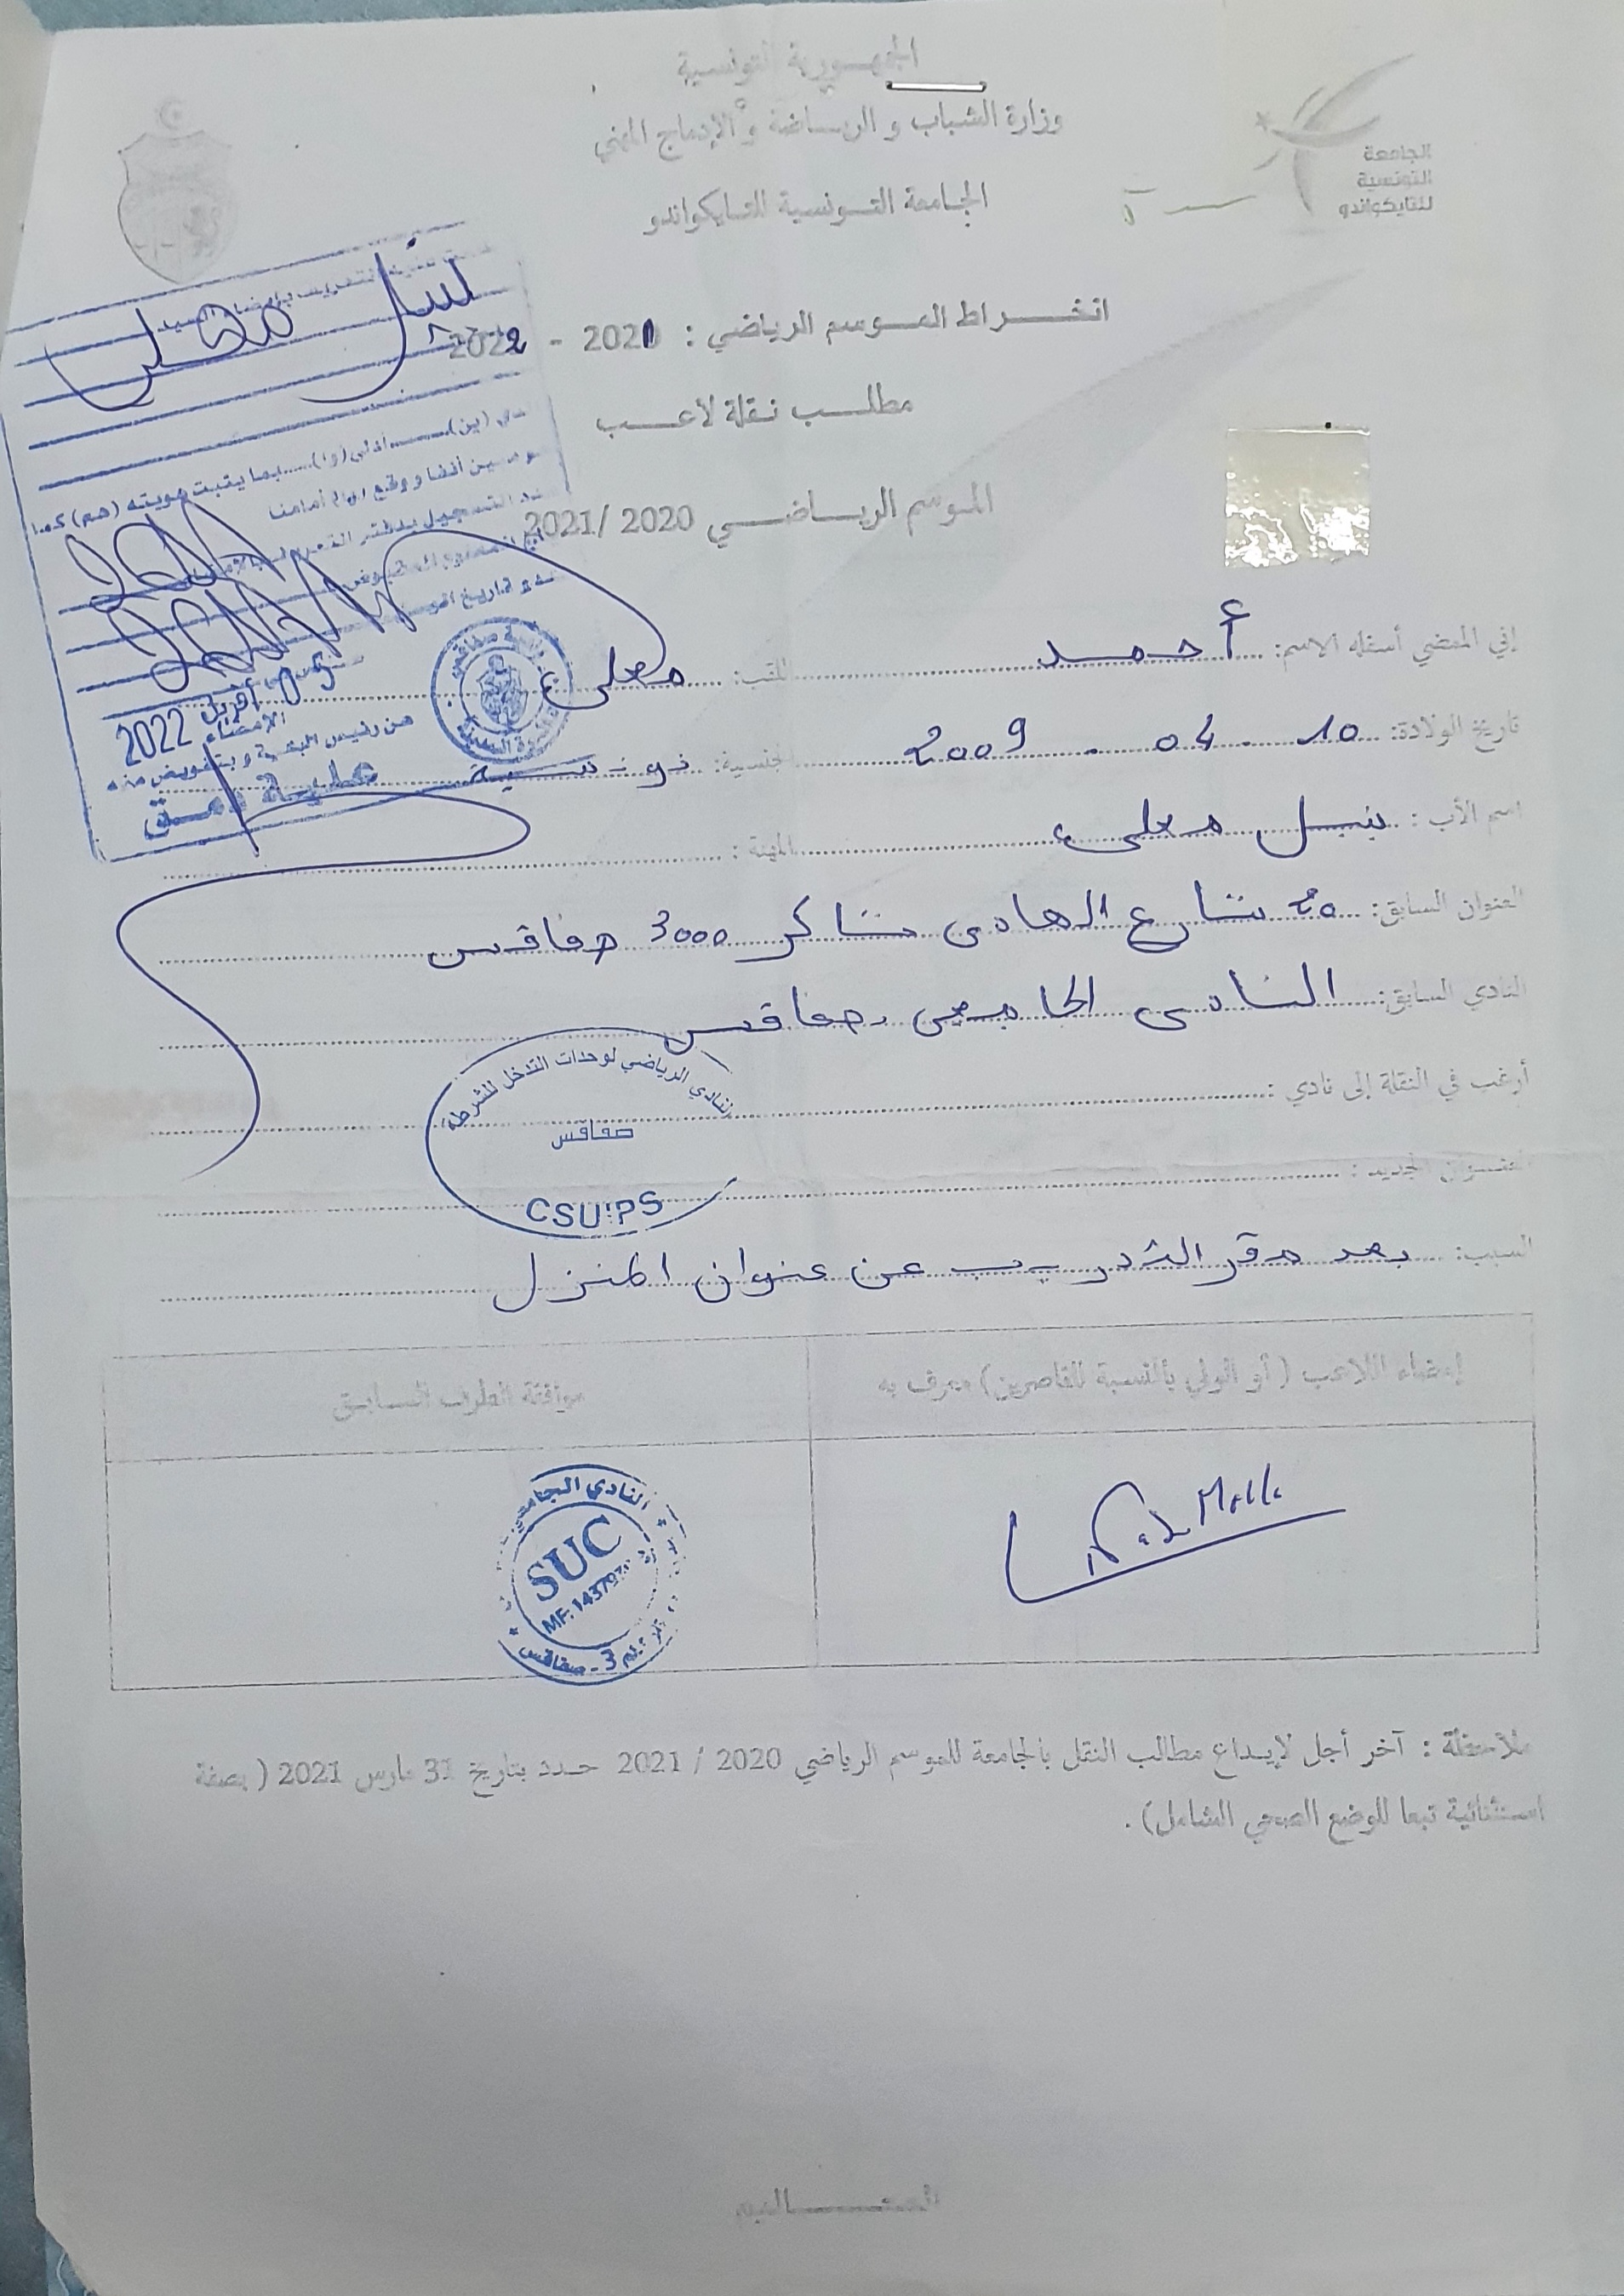 الجمهورية التونسية
وزارة الشباب و الرياضة و الإدماج المهني
الجامعة التونسية للتايكواندو
الجامعة
التونسية
للتايكواندو
انخراط الموسم الرياضي : 2021 - 2022
مطلب نقلة لاعب
الموسم الرياضي 2020 /2021
نبيل معلى
(ين)......أدلى(وا)......بما يثبت هويته (هم) كما
آنفا و وقع أمامنا
05 أفريل 2022
الإمضاء
من رئيس البلدية و بتفويض منه
إني الممضي أسفله الاسم: أحمد اللقب: معلى
تاريخ الولادة: 10 - 04 - 2009 الجنسية: تونسية
اسم الأب : نبيل معلى المهنة :
العنوان السابق: 20 شارع الهادي شاكر 3000 صفاقس
النادي السابق: النادي الجامعي صفاقس
أرغب في النقلة إلى نادي :
النادي الرياضي لوحدات التدخل للشرطة
صفاقس
CSUIPS
العنوان الجديد :
السبب: بعد مقر التدريب عن عنوان المنزل
إمضاء اللاعب ( أو الولي بالنسبة للقاصرين) معرف به
موافقة الطرف السابق
النادي الجامعي
SUC
3 - صفاقس
ملاحظة : آخر أجل لإيداع مطالب النقل بالجامعة للموسم الرياضي 2020 / 2021 حدد بتاريخ 31 مارس 2021 ( بصفة
استثنائية تبعا للوضع الصحي الشامل) .